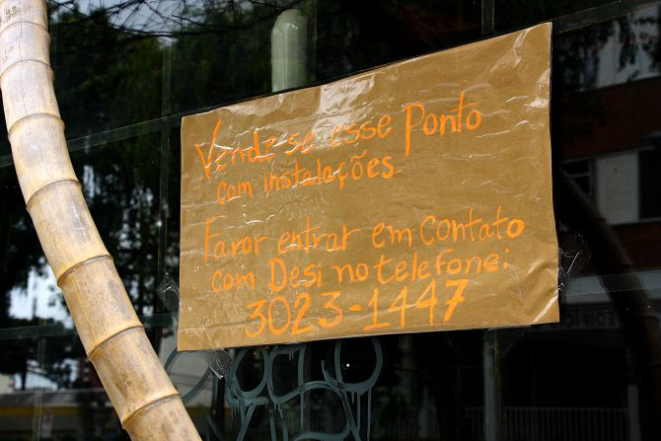 Vende se esse Ponto
com instalações
Favor entrar em contato
com Desi no telefone:
3023-1447